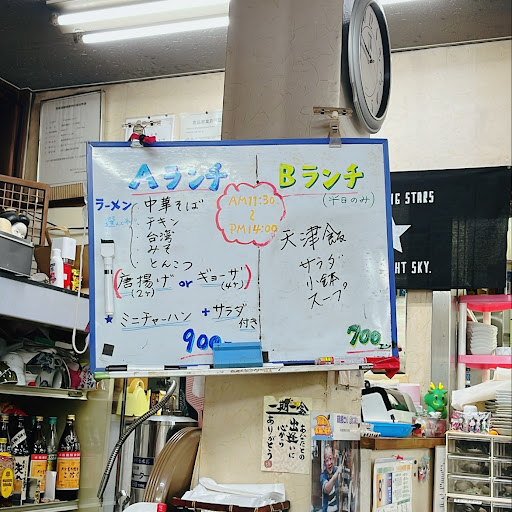 Aランチ
ラーメン
中華そば
チキン
台湾
みそ
とんこつ
唐揚げ or ギョーザ
(2ヶ) (4ヶ)
★ ミニチャーハン + サラダ
付き
900
AM11:30
~
PM14:00
Bランチ
(平日のみ)
天津飯
サラダ
小鉢
スープ
900
NG STARS
HT SKY.
一期一会
あなたとの
出逢いに
心から
ありがとう